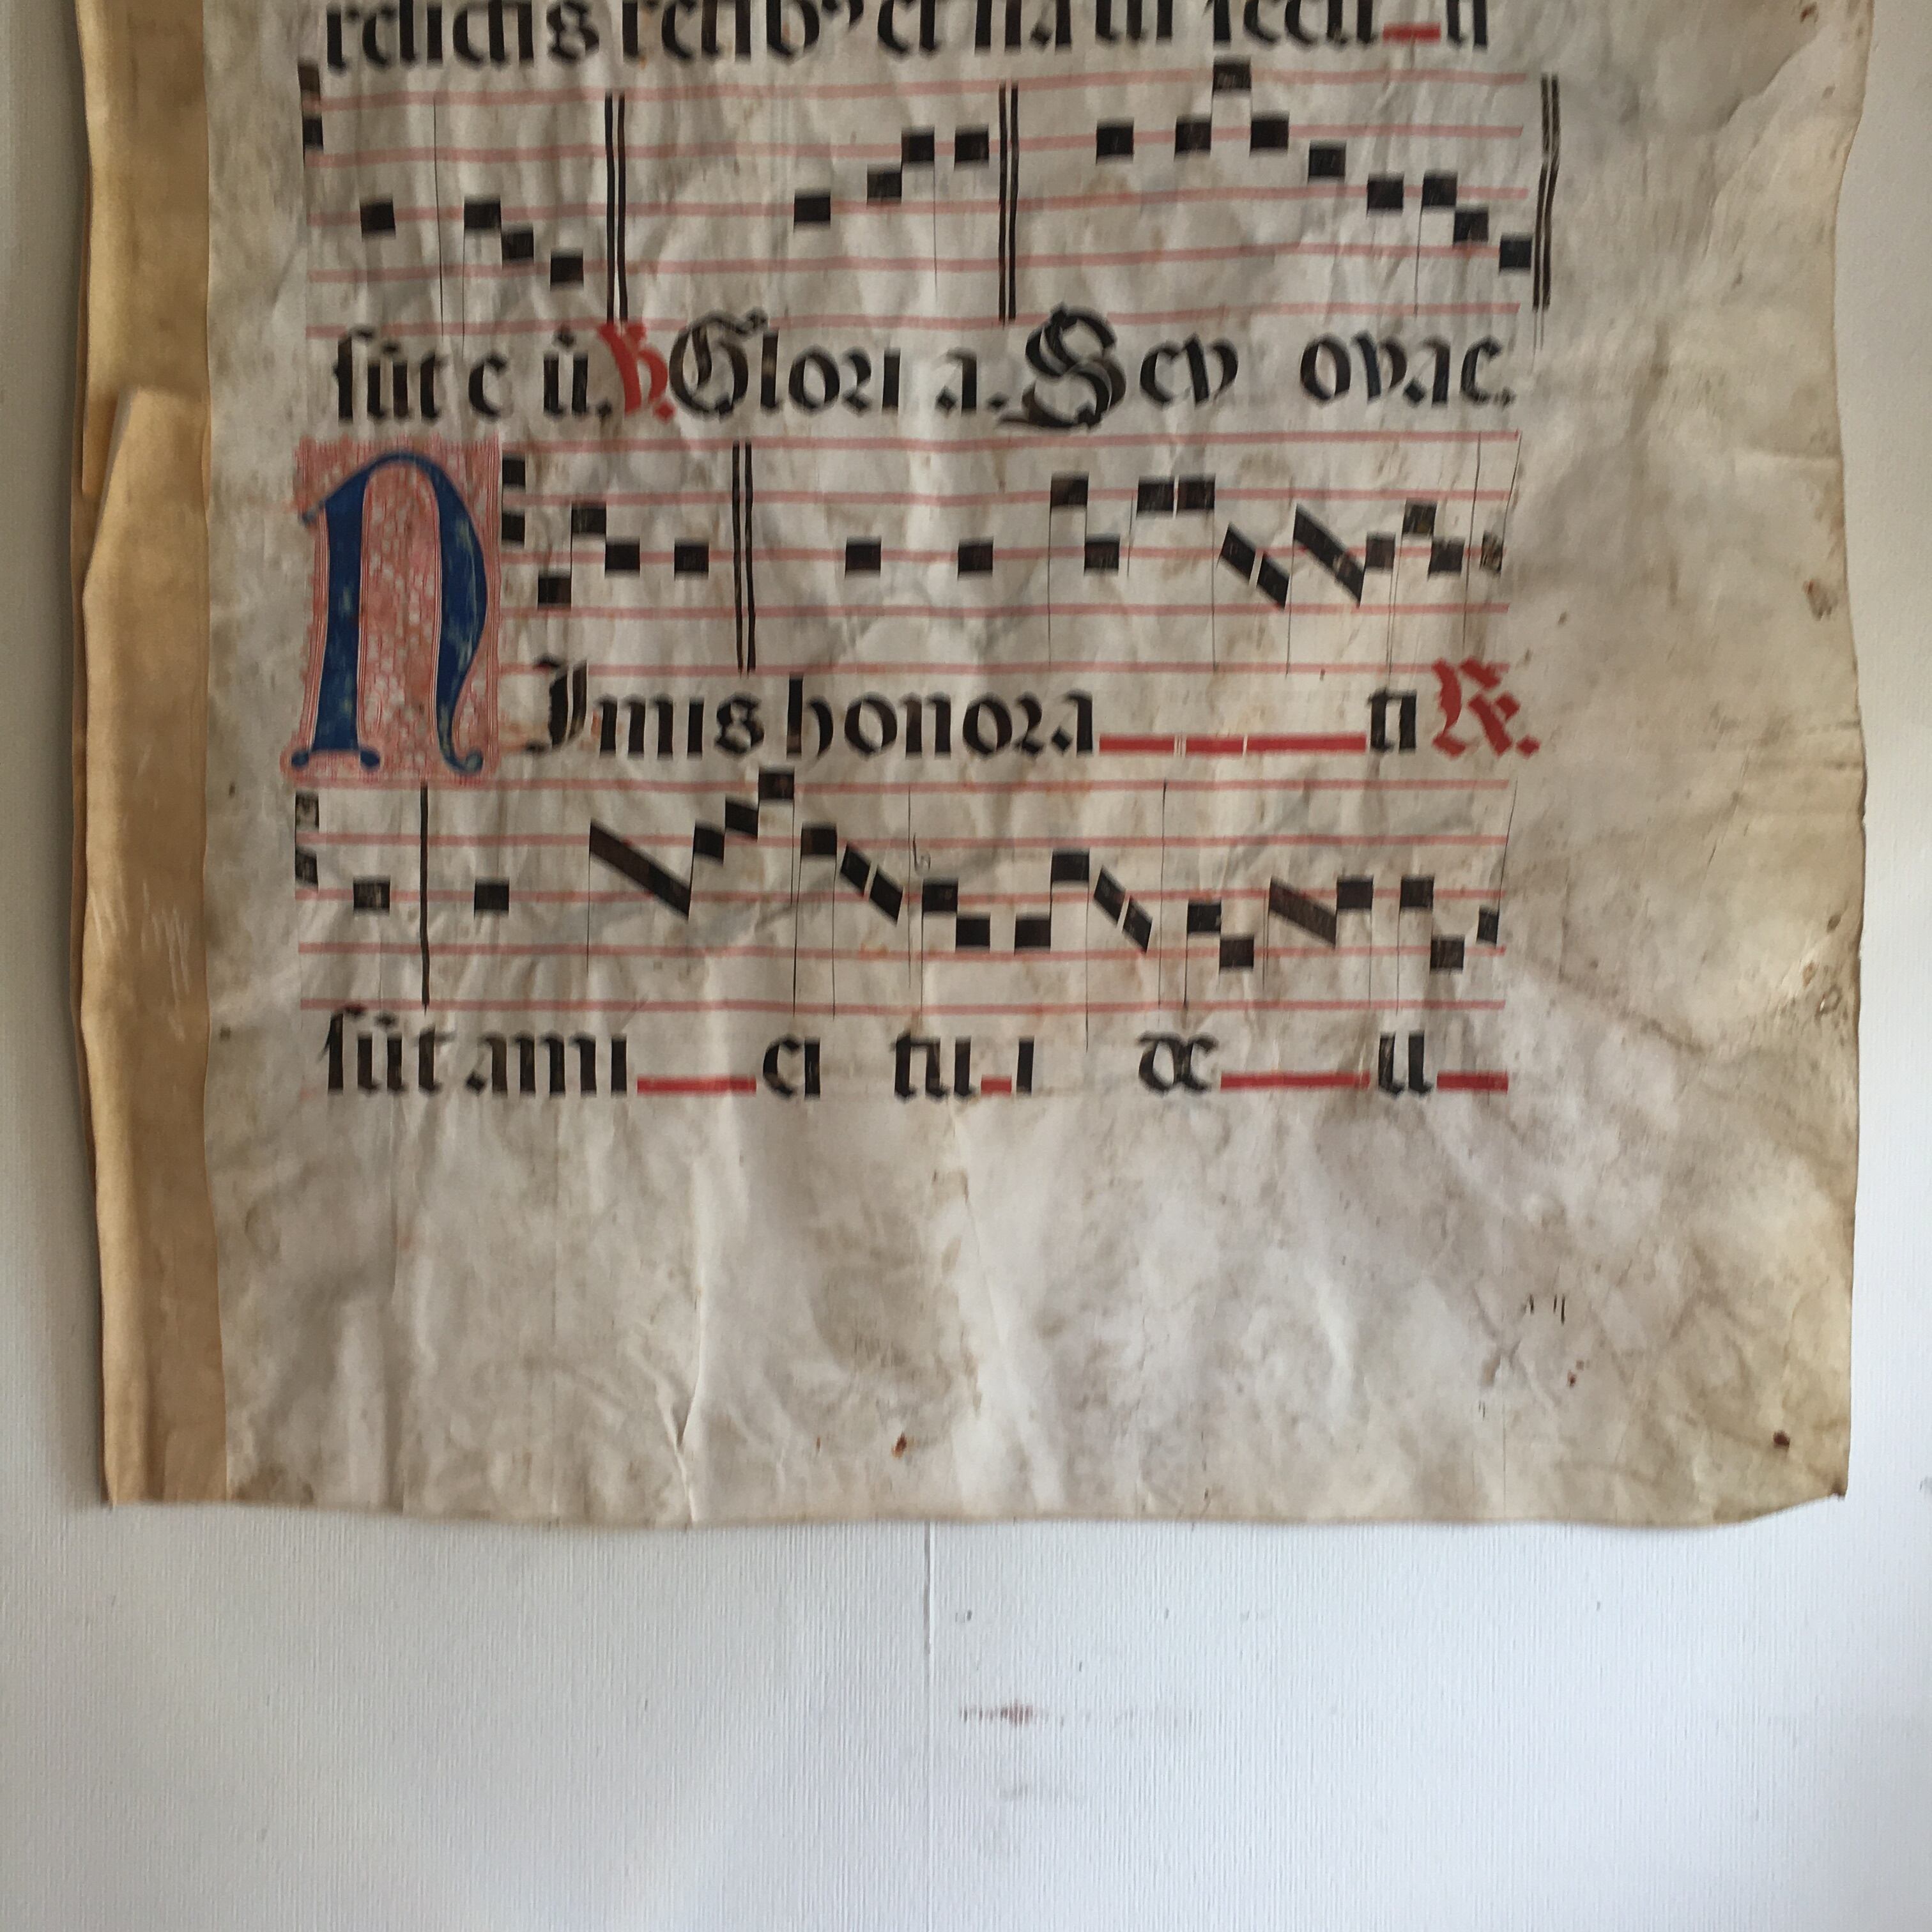 relictis retib⁹ et navi secu ti
sūt e ū. V. Glori a. Seu ovae.
NImis honora ti R.
sūt ami ci tu i de u